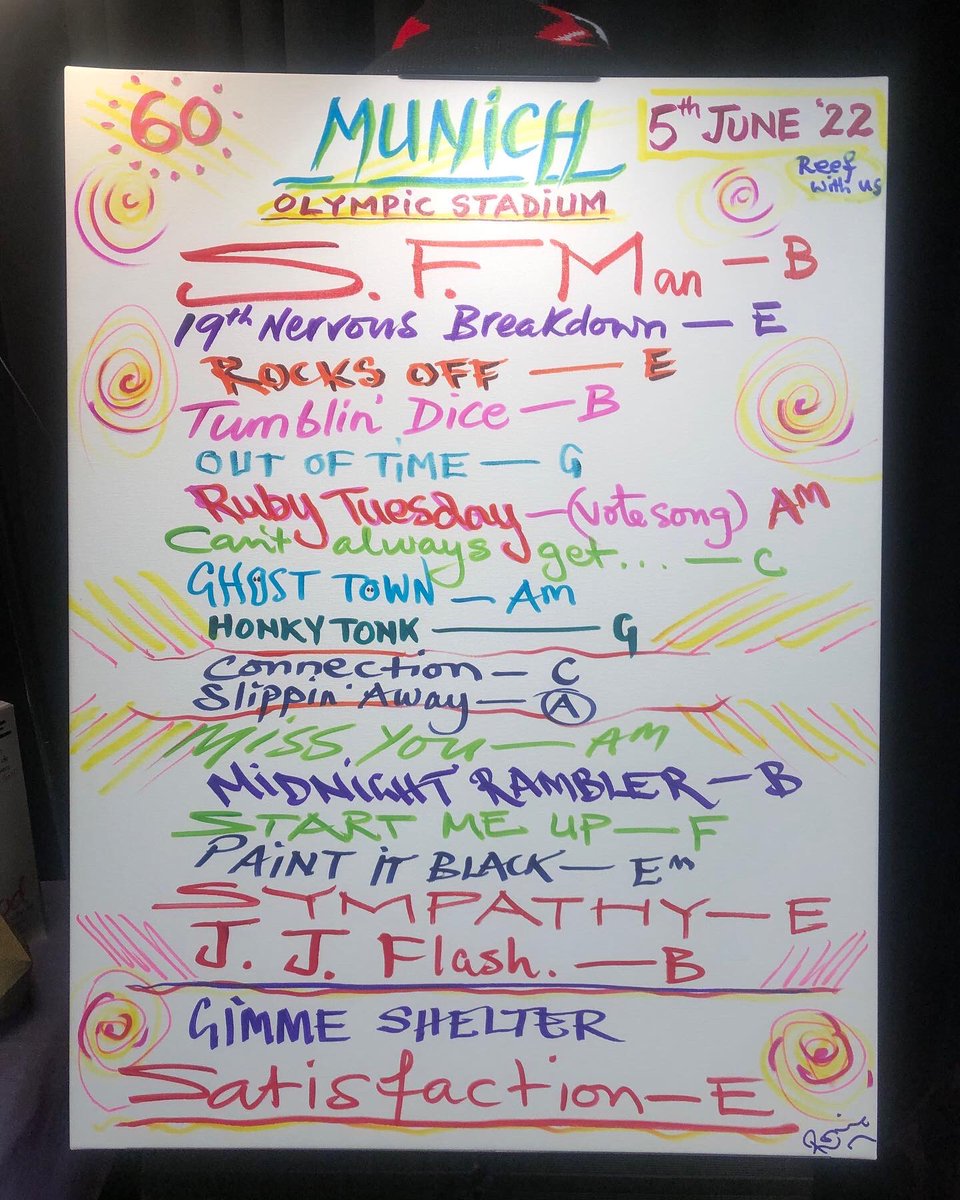 60
MUNICH
5th JUNE '22
Reef
with us
OLYMPIC STADIUM
S.F. Man — B
19th Nervous Breakdown — E
ROCKS OFF — E
Tumblin' Dice — B
OUT OF TIME — G
Ruby Tuesday — (vote song) Am
Can't always get... — C
GHOST TOWN — Am
HONKY TONK — G
Connection — C
Slippin' Away — A
Miss You — Am
MIDNIGHT RAMBLER — B
START ME UP — F
PAINT IT BLACK — Em
SYMPATHY — E
J. J. Flash. — B
GIMME SHELTER
Satisfaction — E